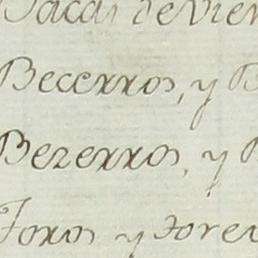 Bacas de vien
Becerros, y B
Bezerros, y B
Toros y tore